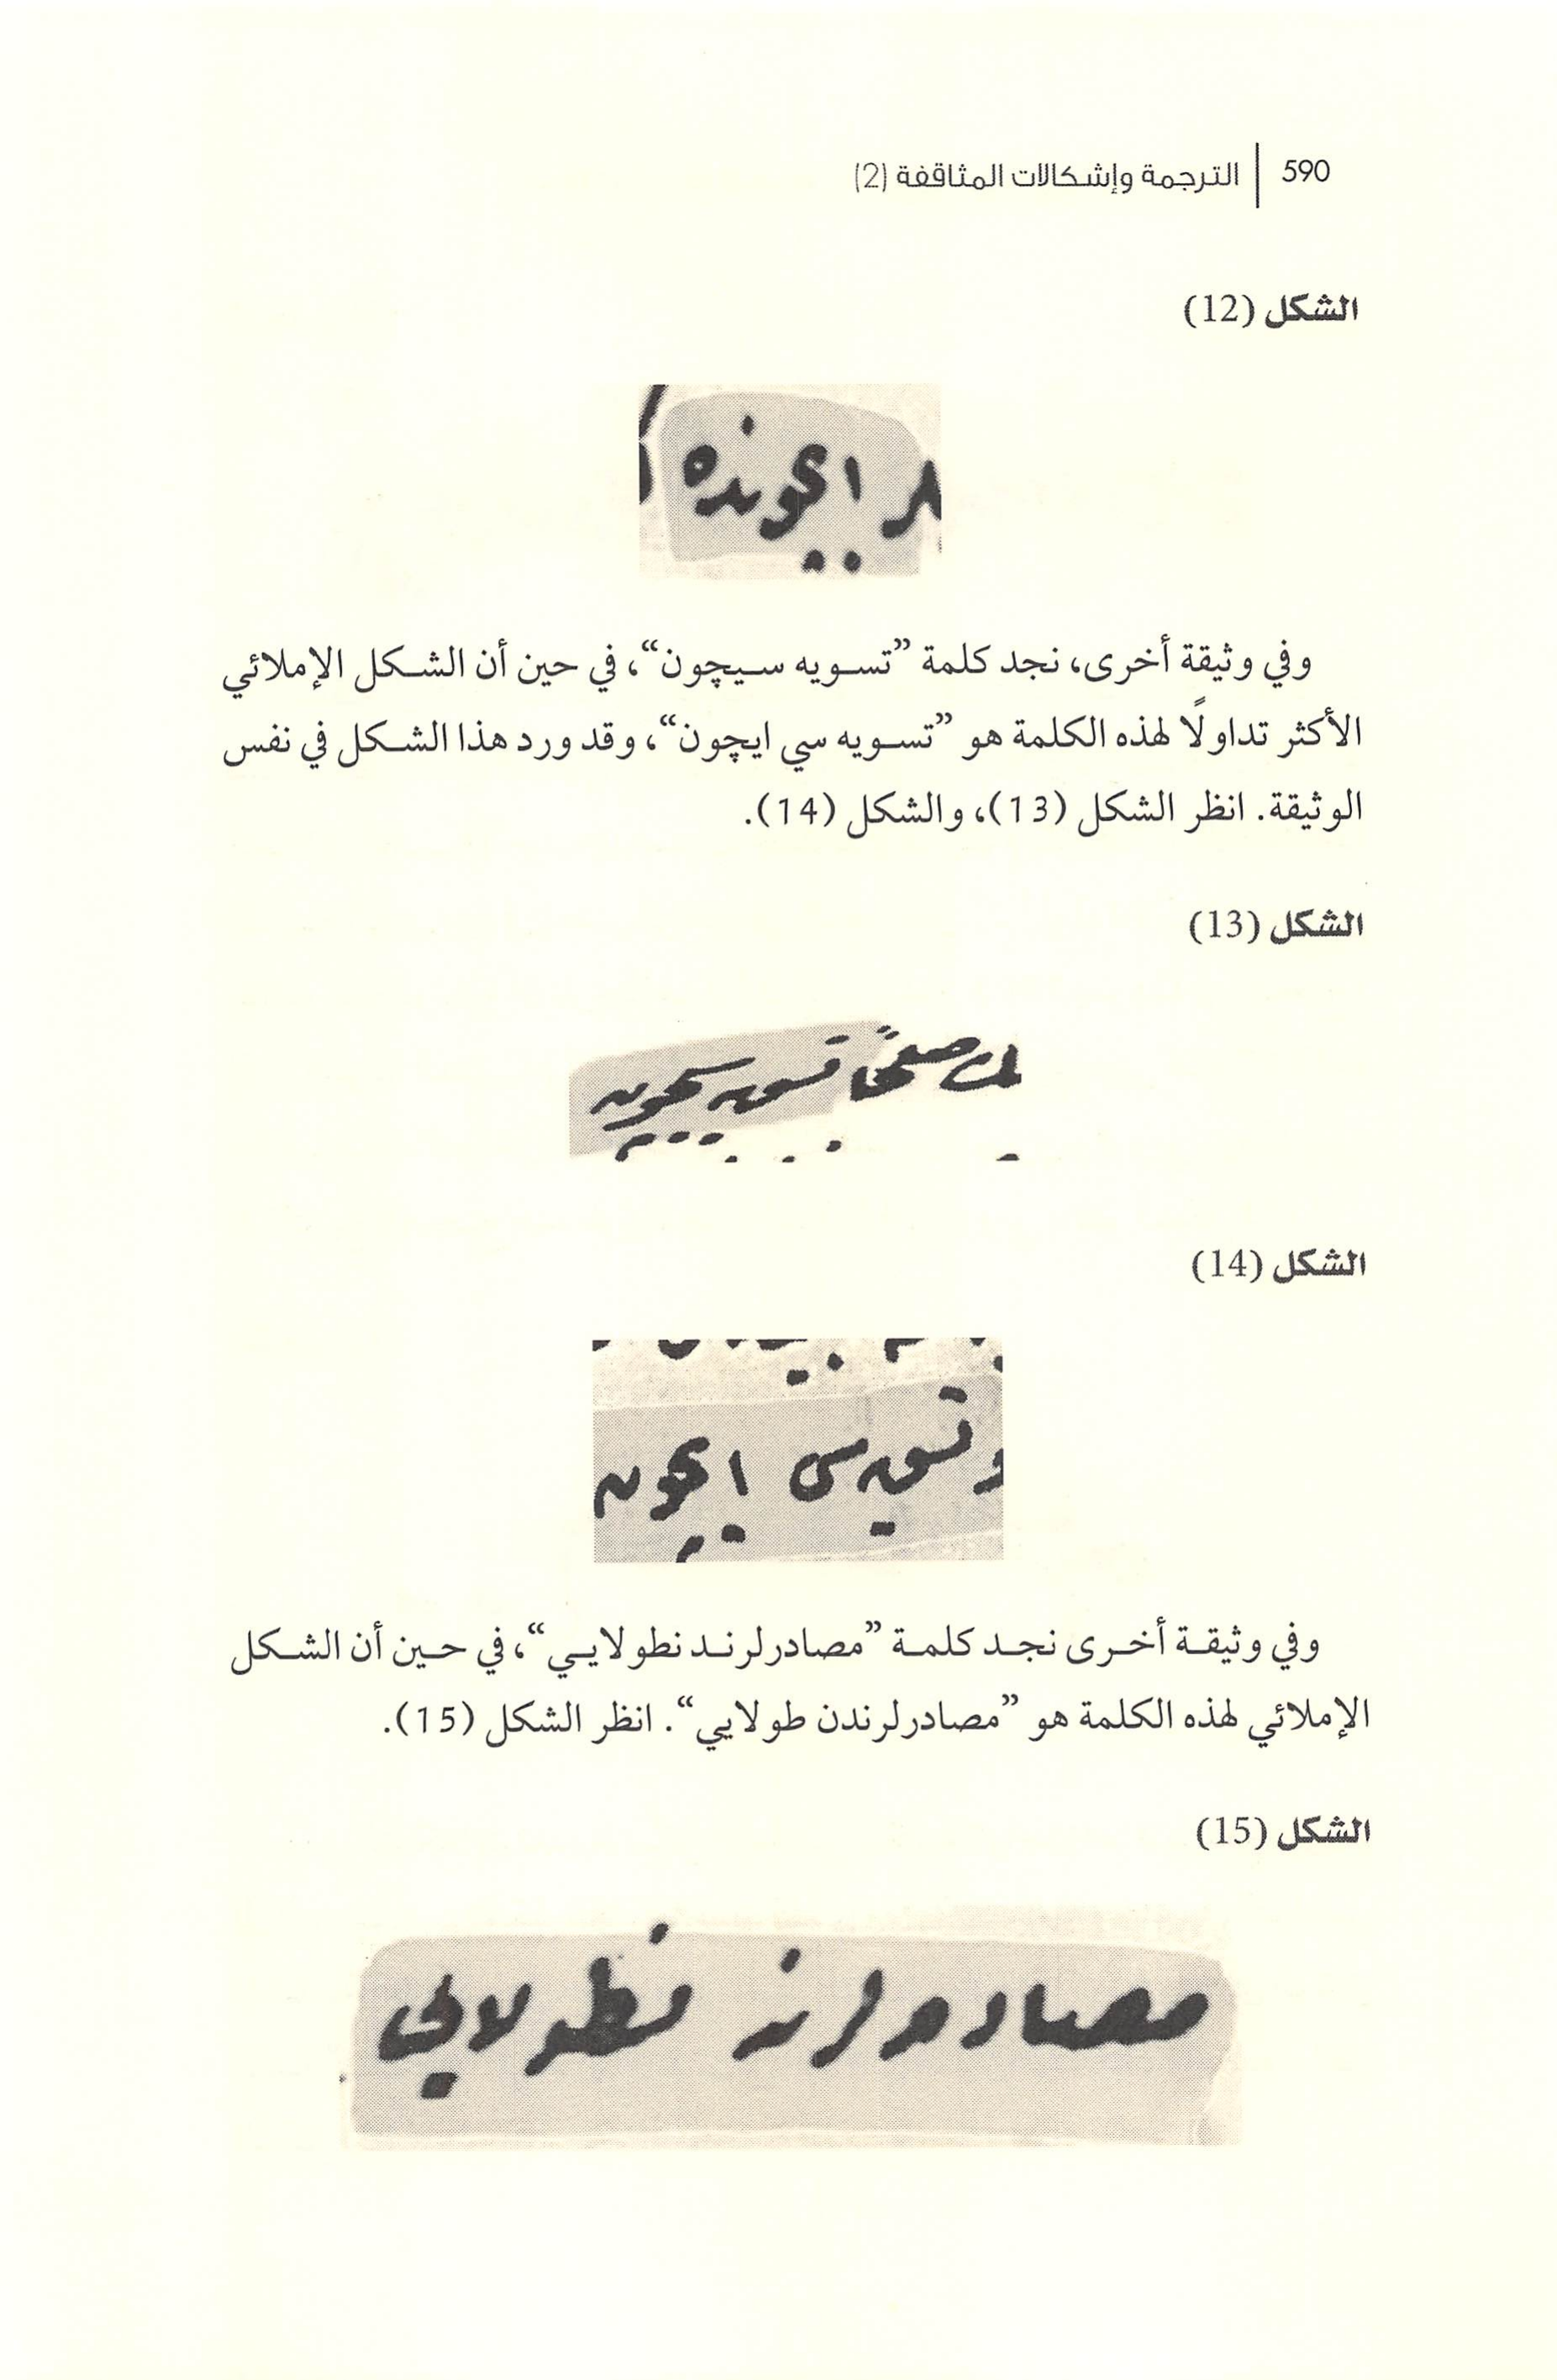 590 الترجمة وإشكالات المثاقفة (2)
الشكل (12)
ايچونده
وفي وثيقة أخرى، نجد كلمة ”تسويه سيچون“، في حين أن الشكل الإملائي
الأكثر تداولًا لهذه الكلمة هو ”تسويه سي ايچون“، وقد ورد هذا الشكل في نفس
الوثيقة. انظر الشكل (13)، والشكل (14).
الشكل (13)
تسويه سيچون
الشكل (14)
و تسويه سى ايچون
وفي وثيقة أخرى نجد كلمة ”مصادرلرند نطولايي“، في حين أن الشكل
الإملائي لهذه الكلمة هو ”مصادرلرندن طولايي“. انظر الشكل (15).
الشكل (15)
مصادرلرند نطولايي